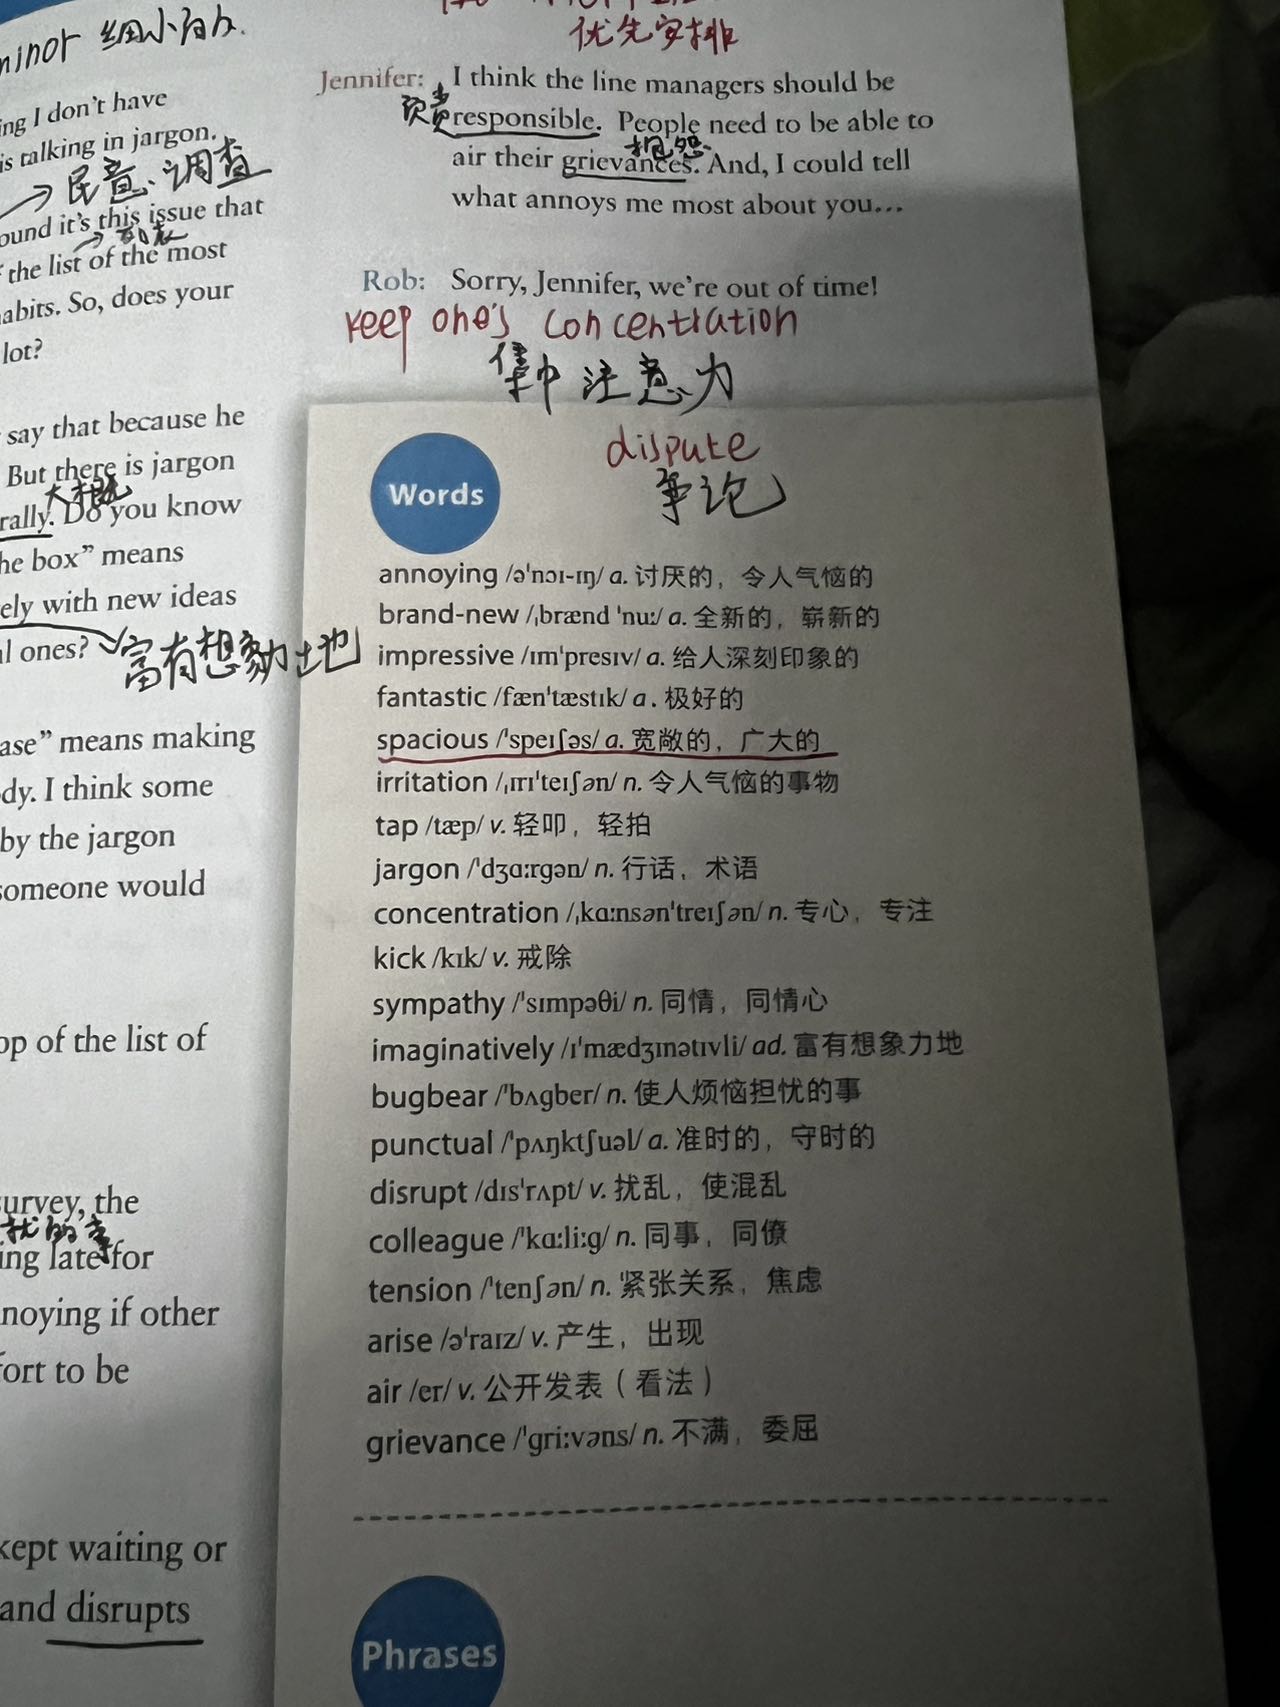 minor 细小的.
ing I don't have
is talking in jargon.
民意调查
ound it's this issue that
列表
the list of the most
abits. So, does your
lot?
say that because he
But there is jargon
大概
rally. Do you know
he box" means
ely with new ideas
l ones?
富有想象力地
ase" means making
dy. I think some
by the jargon
someone would
op of the list of
survey, the
扰的事
ing late for
nnoying if other
fort to be
kept waiting or
and disrupts
优先安排
Jennifer: I think the line managers should be
responsible. People need to be able to
抱怨
air their grievances. And, I could tell
what annoys me most about you...
Rob: Sorry, Jennifer, we're out of time!
keep one's concentration
集中注意力
dispute
争论
Words
annoying /ə'nɔɪ-ɪŋ/ a. 讨厌的，令人气恼的
brand-new /ˌbrænd 'nuː/ a. 全新的，崭新的
impressive /ɪm'presɪv/ a. 给人深刻印象的
fantastic /fæn'tæstɪk/ a. 极好的
spacious /'speɪʃəs/ a. 宽敞的，广大的
irritation /ˌɪrɪ'teɪʃən/ n. 令人气恼的事物
tap /tæp/ v. 轻叩，轻拍
jargon /'dʒɑːrgən/ n. 行话，术语
concentration /ˌkɑːnsən'treɪʃən/ n. 专心，专注
kick /kɪk/ v. 戒除
sympathy /'sɪmpəθi/ n. 同情，同情心
imaginatively /ɪ'mædʒɪnətɪvli/ ad. 富有想象力地
bugbear /'bʌgber/ n. 使人烦恼担忧的事
punctual /'pʌŋktʃuəl/ a. 准时的，守时的
disrupt /dɪs'rʌpt/ v. 扰乱，使混乱
colleague /'kɑːliːg/ n. 同事，同僚
tension /'tenʃən/ n. 紧张关系，焦虑
arise /ə'raɪz/ v. 产生，出现
air /er/ v. 公开发表（看法）
grievance /'griːvəns/ n. 不满，委屈
Phrases